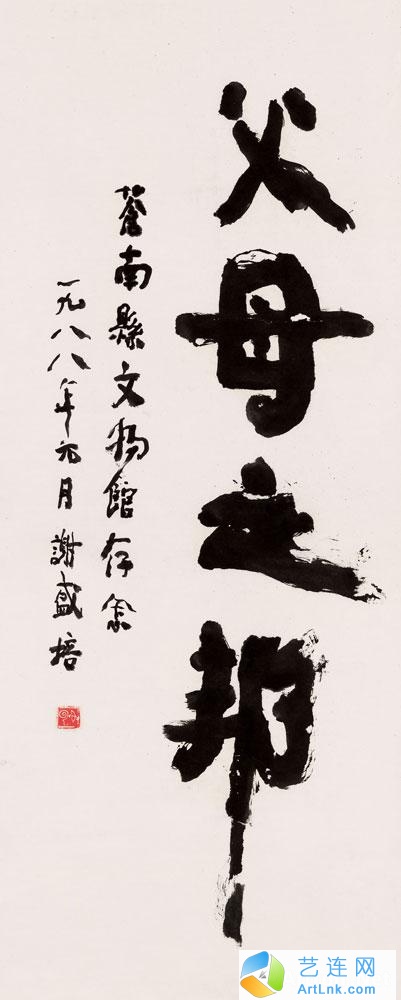 父母之邦
蒼南縣文物館存念
一九八八年元月謝盛培
艺连网
ArtLnk.com